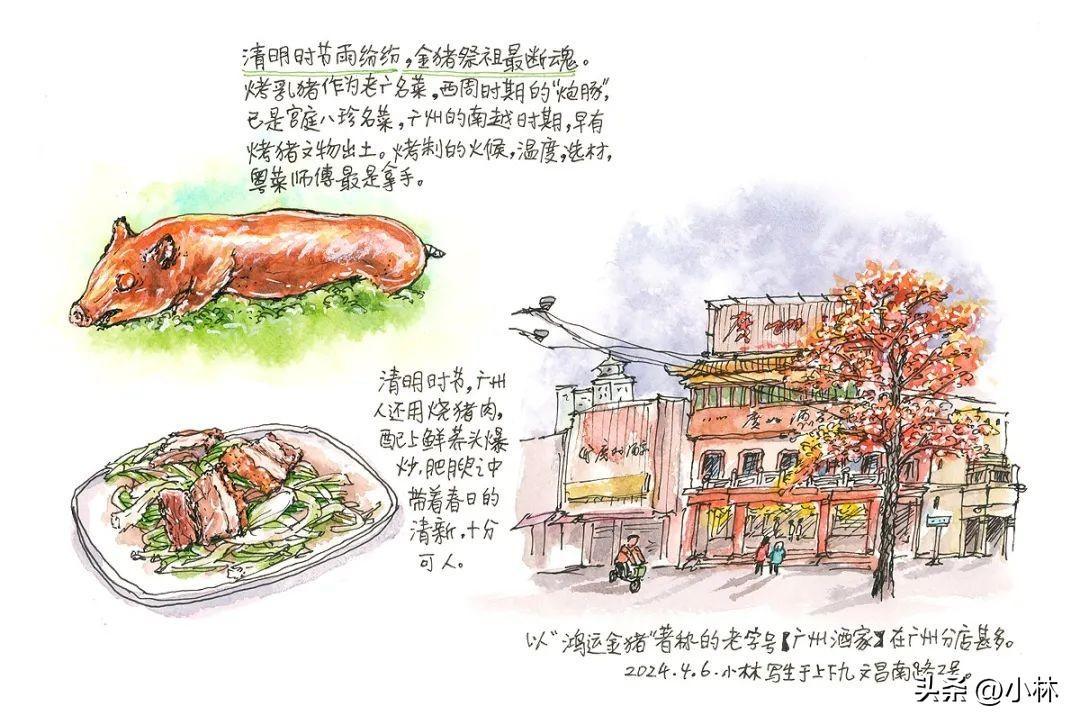 清明时节雨纷纷,金猪祭祖最断魂。
烤乳猪作为老广名菜,西周时期的“炮豚”,
已是宫庭八珍名菜,广州的南越时期,早有
烤猪文物出土。烤制的火候,温度,选材,
粤菜师傅最是拿手。
清明时节,广州
人还用烧猪肉,
配上鲜荞头爆
炒,肥腴之中
带着春日的
清新,十分
可人。
广州酒家
以“鸿运金猪”著称的老字号【广州酒家】在广州分店甚多。
2024.4.6.小林写生于上下九文昌南路2号。
头条@小林